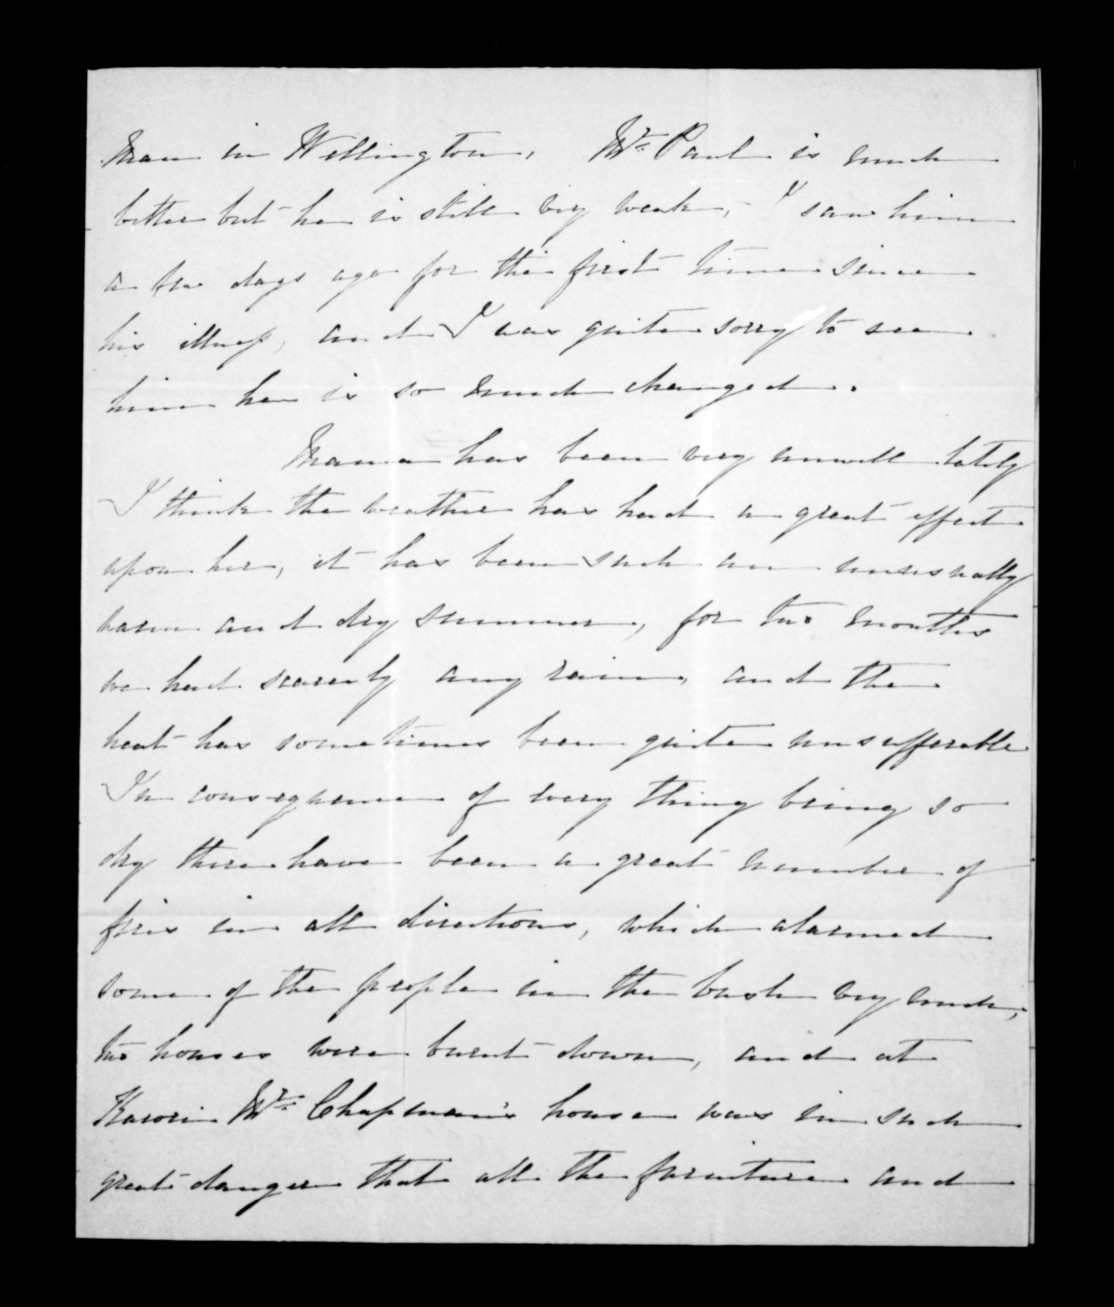 man in Wellington. Mr. Paul is much
better but he is still very weak, I saw him
a few days ago for the first time since
his illness, and I was quite sorry to see
him he is so much changed.
Mama has been very unwell lately
I think the weather has had a great effect
upon her, it has been such an unusually
warm and dry summer, for two months
we had scarcely any rain, and the
heat has sometimes been quite unsufferable
In consequence of every thing being so
dry there have been a great number of
fires in all directions, which alarmed
some of the people in the bush very much,
two houses were burnt down, and at
Karori Mr. Chapman's house was in such
great danger that all the furniture and